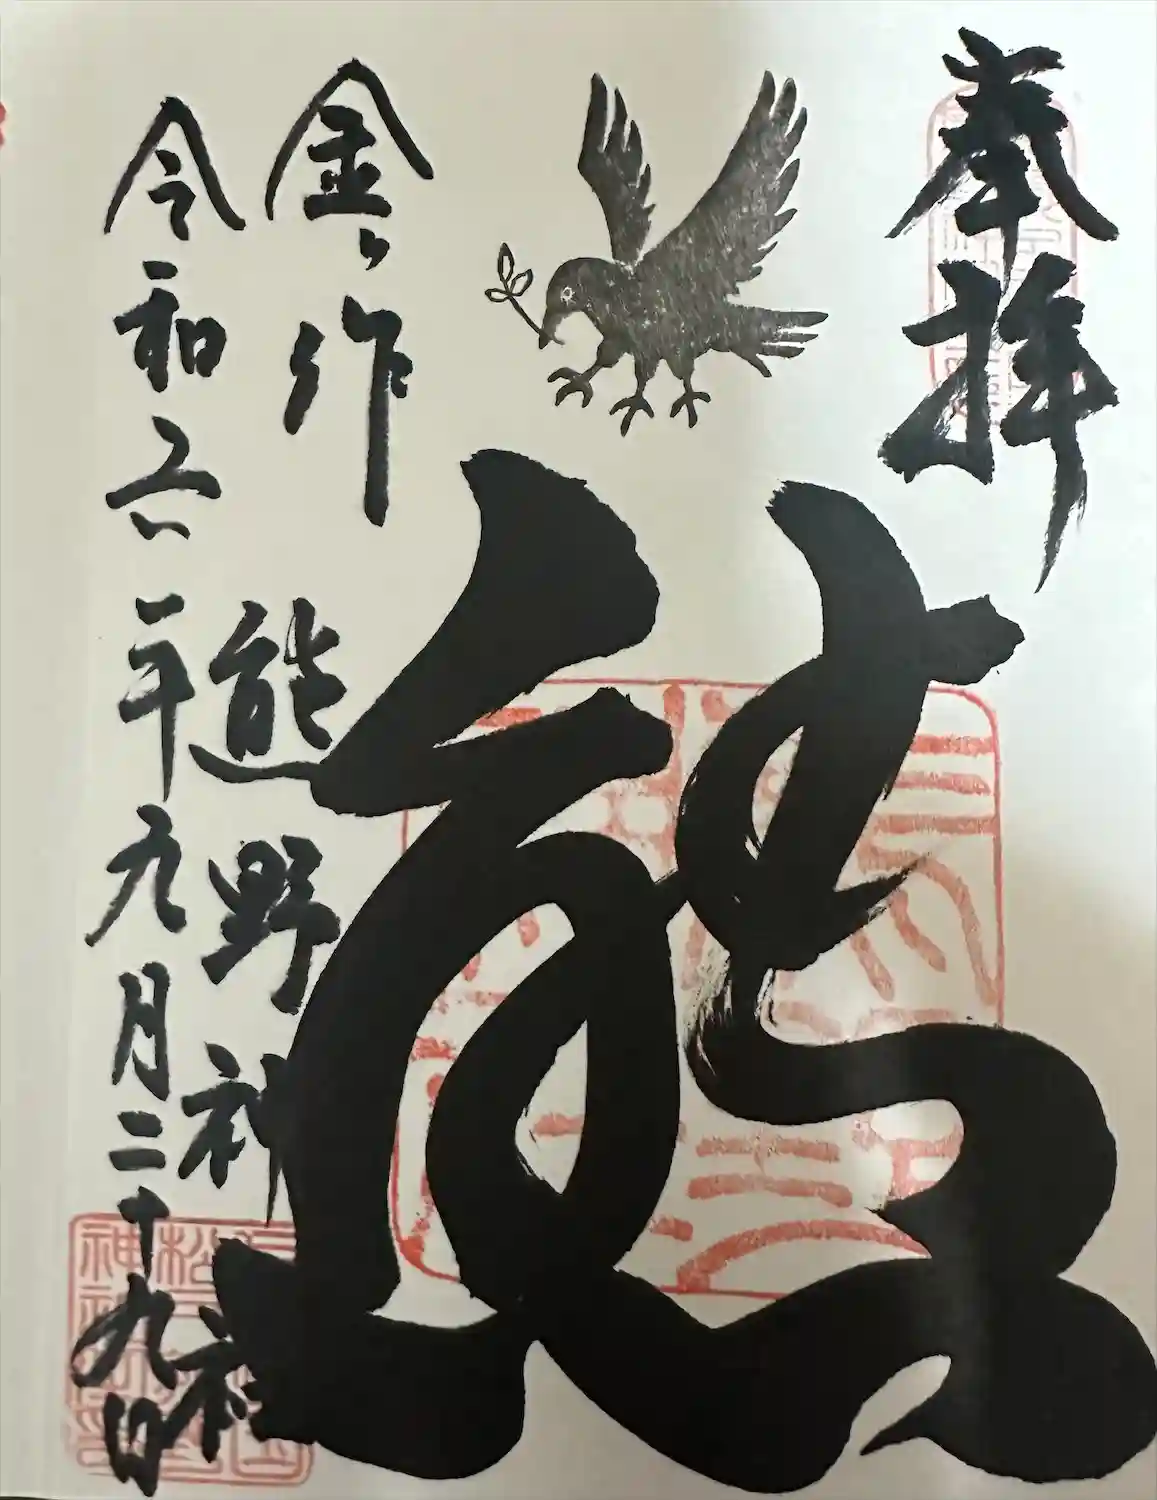 奉拝
熊
金ヶ作
熊野神社
令和六年九月二十九日